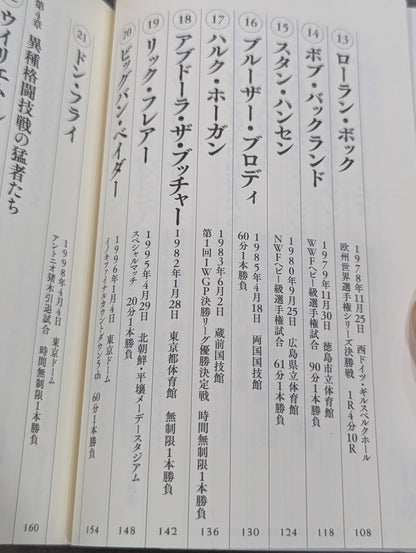 ⑬ ローラン・ボック
1978年11月25日　西ドイツ・ギルスベルクホール
欧州世界選手権シリーズ決勝戦　1R4分10R
108
⑭ ボブ・バックランド
1979年11月30日　徳島市立体育館
WWFヘビー級選手権試合　90分1本勝負
118
⑮ スタン・ハンセン
1980年9月25日　広島県立体育館
NWFヘビー級選手権試合　61分1本勝負
124
⑯ ブルーザー・ブロディ
1985年4月18日　両国国技館
60分1本勝負
130
⑰ ハルク・ホーガン
1983年6月2日　蔵前国技館
第1回IWGP決勝リーグ優勝決定戦　時間無制限1本勝負
136
⑱ アブドーラ・ザ・ブッチャー
1982年1月28日　東京都体育館　無制限1本勝負
142
⑲ リック・フレアー
1995年4月29日　北朝鮮・平壌メーデースタジアム
スペシャルマッチ　20分1本勝負
148
⑳ ビッグバン・ベイダー
1996年1月4日　東京ドーム
イノキファイナルカウントダウン5th　60分1本勝負
154
㉑ ドン・フライ
1998年4月4日　東京ドーム
アントニオ猪木引退試合　時間無制限1本勝負
160
第4章 異種格闘技戦の猛者たち
ウィリエム